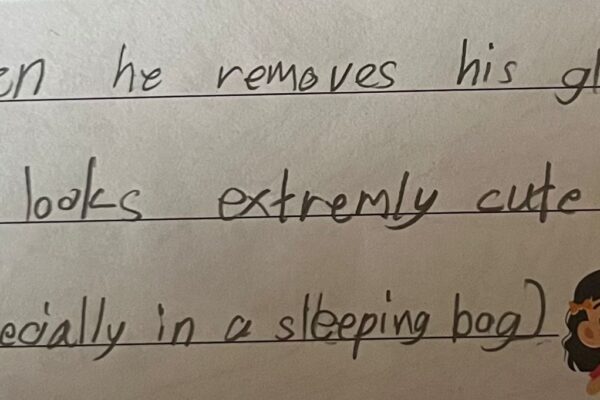 en he removes his gl
looks extremly cute
ecially in a sleeping bag)